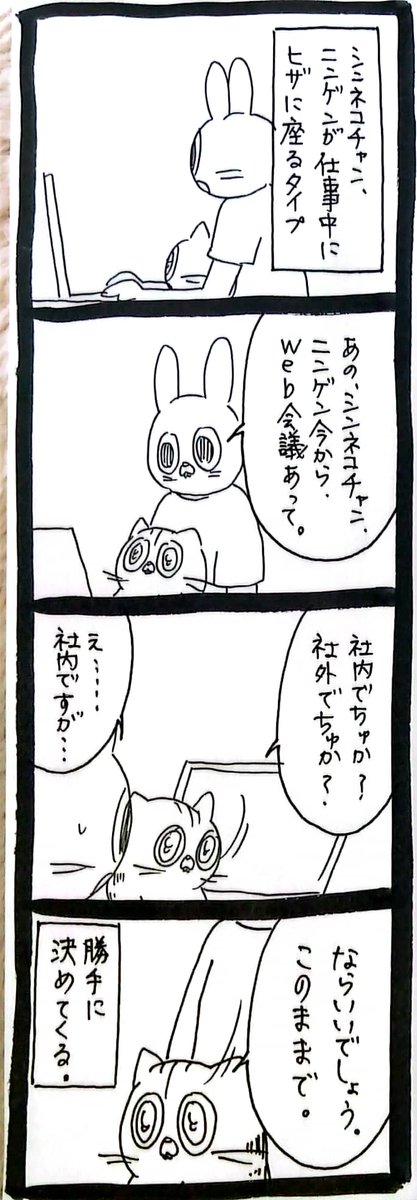 シンネコチャン、
ニンゲンが仕事中に
ヒザに座るタイプ
あの、シンネコチャン、
ニンゲン今から、
Web会議あって。
社内でちゅか?
社外でちゅか?
え……
社内ですが…
ならいいでしょう。
このままで。
勝手に
決めてくる。